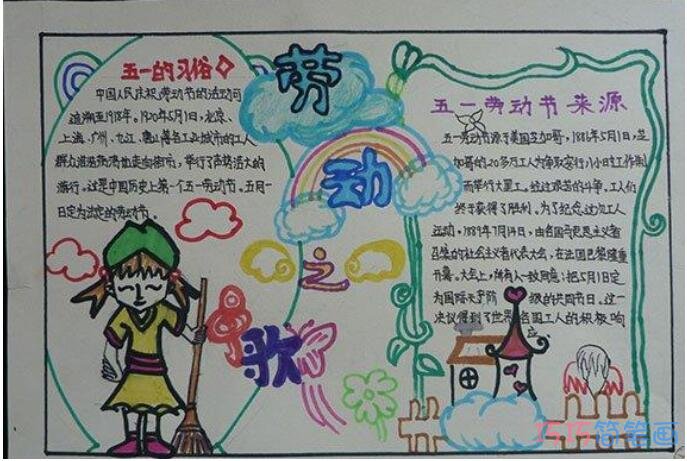 五一的习俗
中国人民庆祝劳动节的活动可
追溯至1918年。1920年5月1日,北京、
上海、广州、九江、唐山等各工业城市的工人
群众浩浩荡荡地走向街市,举行了声势浩大的
游行。这是中国历史上第一个五一劳动节。五月一
日定为法定的劳动节。
劳
动
之
歌
五一劳动节来源
五一劳动节源于美国芝加哥,1886年5月1日,芝
加哥的20多万工人为争取实行8小时工作制
而举行大罢工。经过艰苦的斗争,工人们
终于获得了胜利。为了纪念这次工人
运动,1889年7月14日,由各国马克思主义者
召集的社会主义者代表大会,在法国巴黎隆重
开幕。大会上,所有人一致同意:把5月1日定
为国际无产阶级的共同节日。这一
决议得到了世界各国工人的积极响
应。
巧巧简笔画